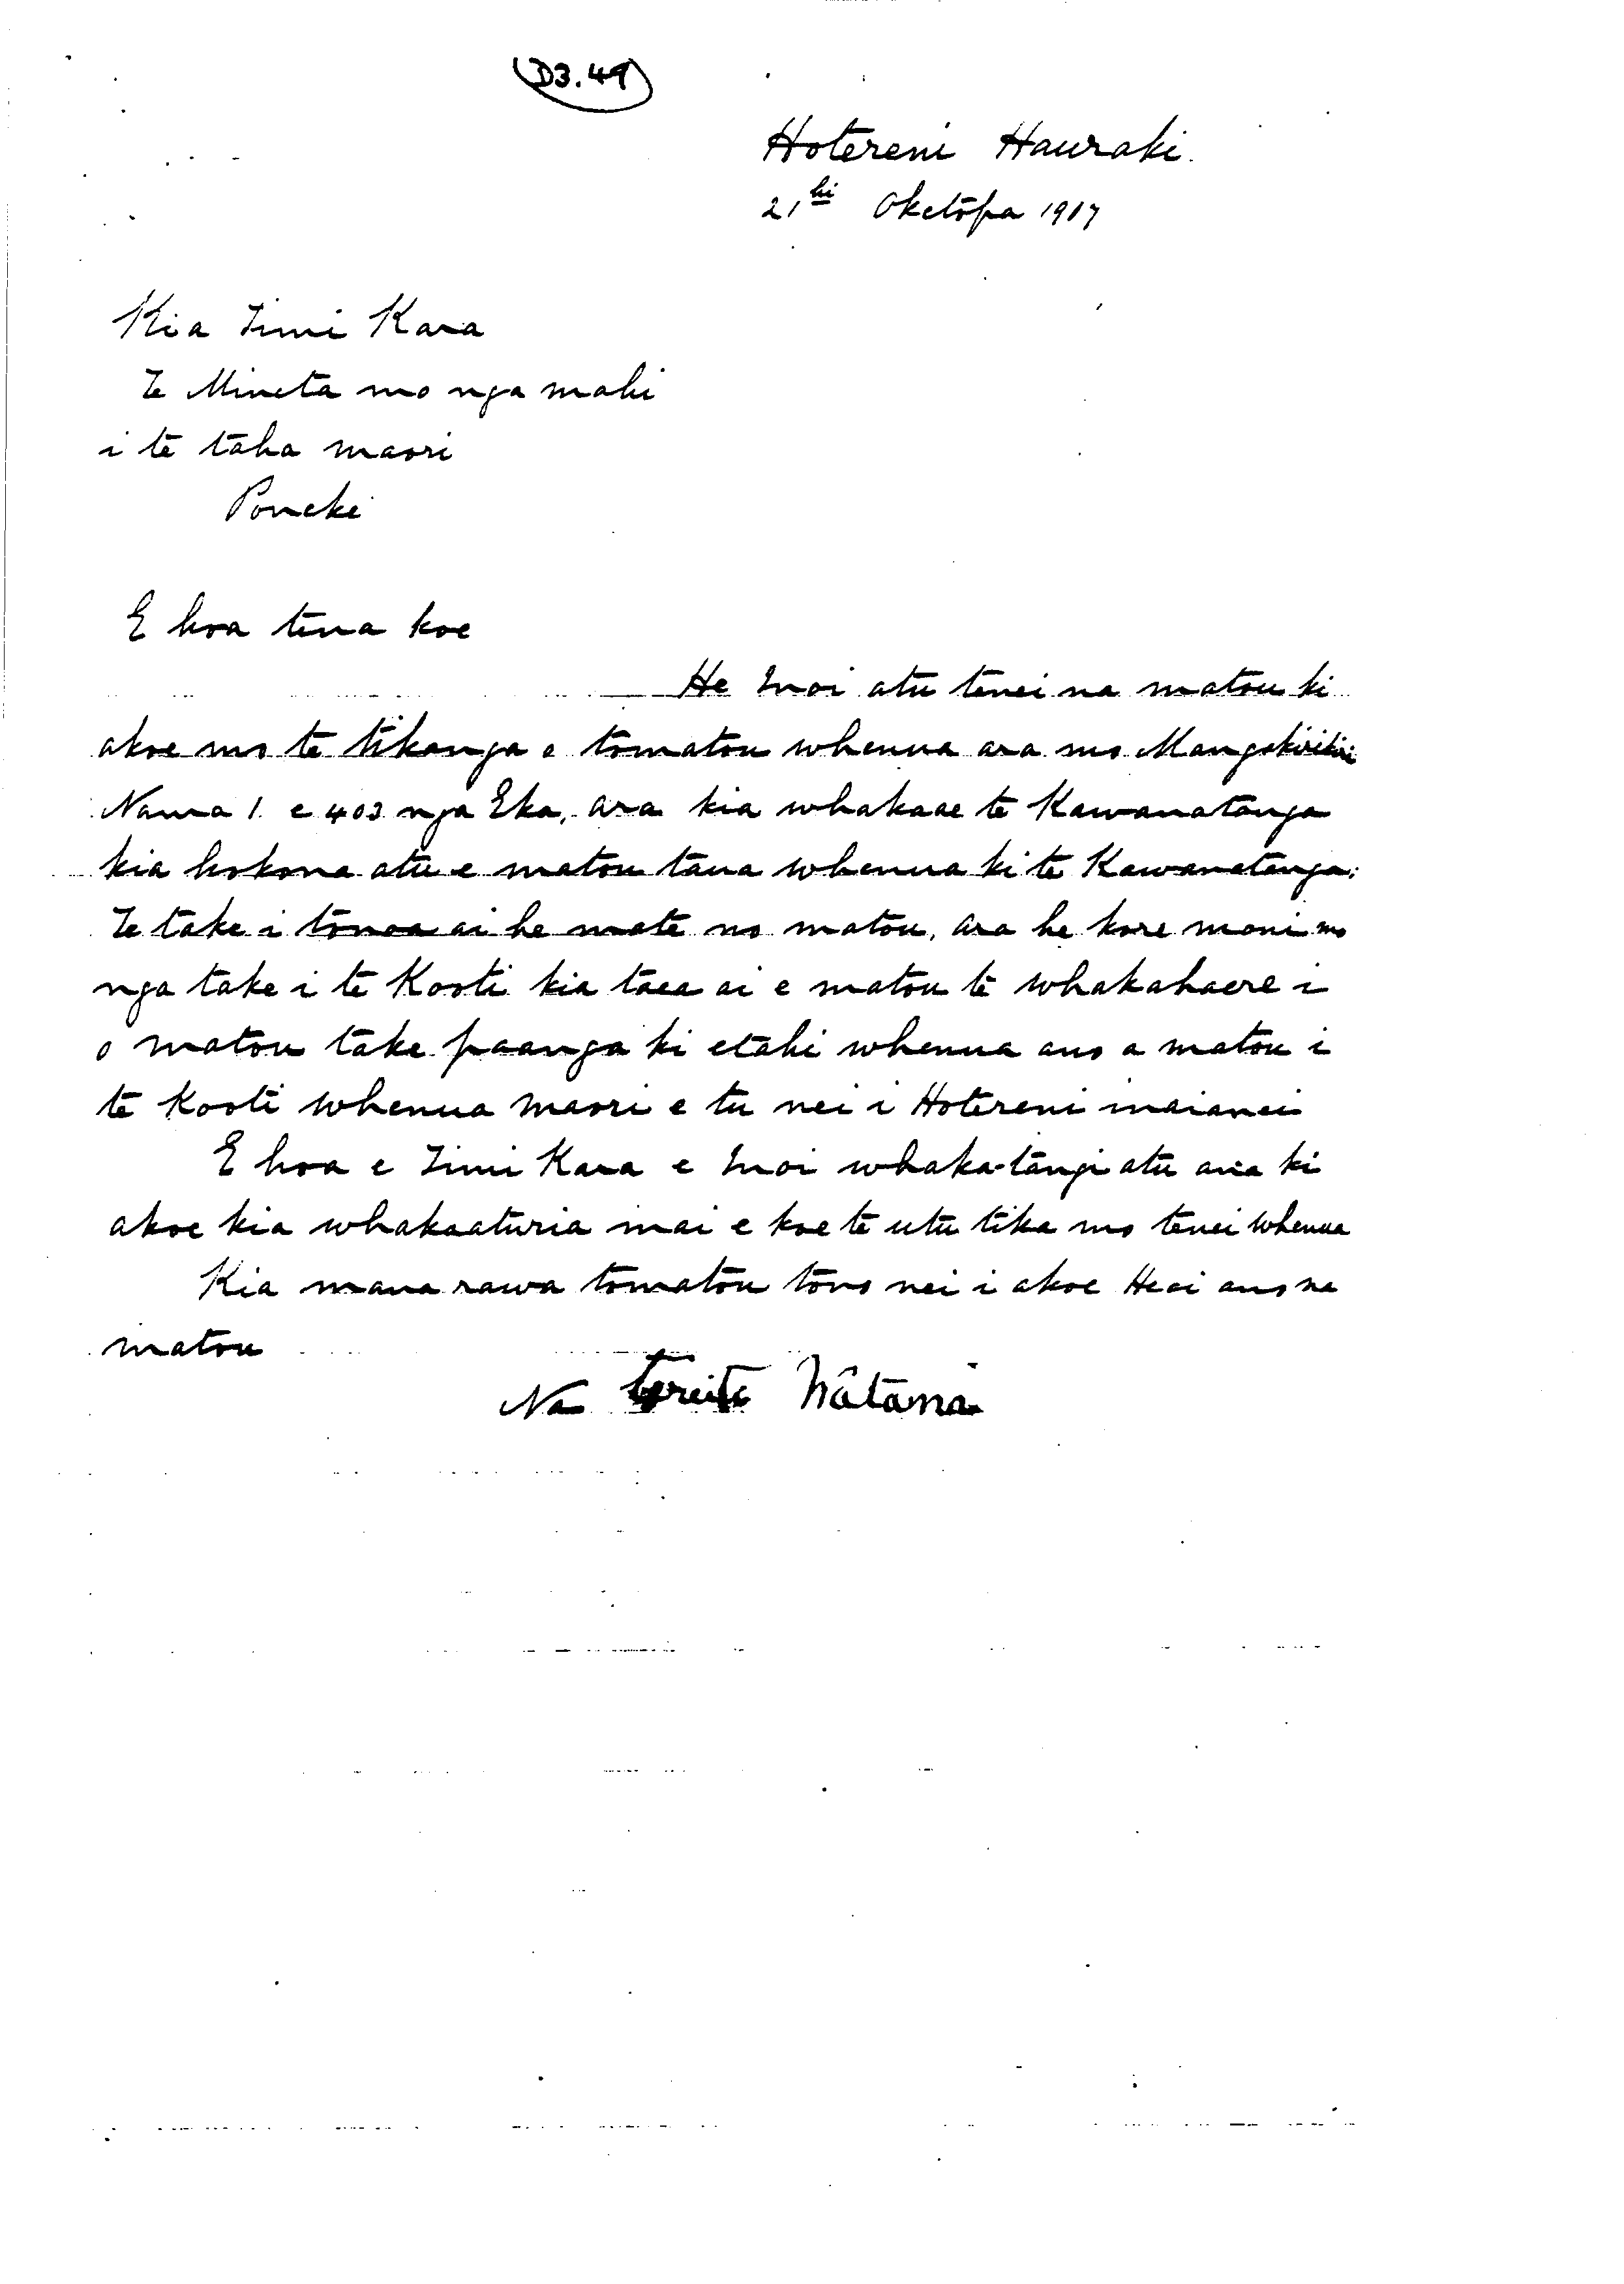 D3.49
Hotereni Hauraki.
21 hi Oketopa 1907
Kia Timi Kara
Te Mineta mo nga mahi
i te taha maori
Poneke
E hoa tena koe
He Inoi atu tenei na matou ki
akoe mo te tikanga o tomatou whenua ara mo Mangakirikiri
Nama 1. e 403 nga Eka, ara kia whakaae te Kawanatanga
kia hokona atu e matou taua whenua ki te Kawanatanga.
Te take i tonoa ai he mate no matou, ara he kore moni mo
nga take i te Kooti kia taea ai e matou te whakahaere i
o matou take paanga ki etahi whenua ano a matou i
te Kooti Whenua Maori e tu nei i Hotereni inaianei
E hoa e Timi Kara e Inoi whaka-tangi atu ana ki
akoe kia whakaaturia mai e koe te utu tika mo tenei whenua
Kia mana rawa tomatou tono nei i akoe Heoi ano na
matou
Na Watana